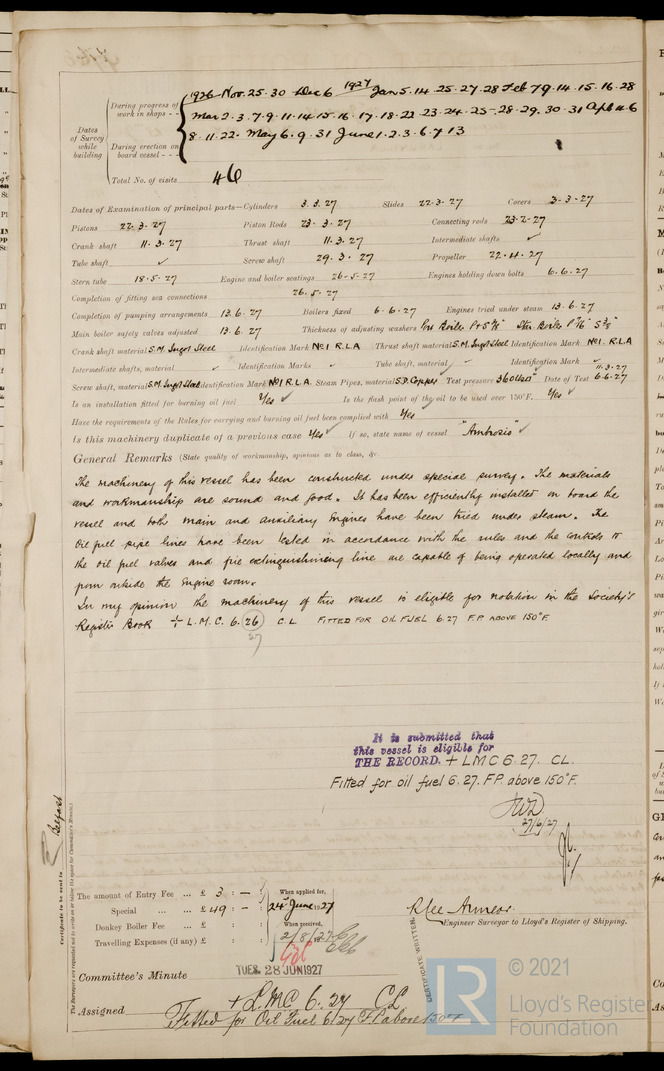 Dates of Survey while building
During progress of work in shops - -
1926 Nov. 25. 30 Dec 6 1927 Jan 5. 14. 25. 27. 28 Feb 7 9. 14. 15. 16. 28
Mar 2. 3. 7. 9. 11. 14. 15. 16. 17. 18. 22. 23. 24. 25. 28. 29. 30. 31 Apl 4. 6
During erection on board vessel - - -
8. 11. 22. May 6. 9. 31 June 1. 2. 3. 6. 7 13
Total No. of visits 46
Dates of Examination of principal parts—Cylinders 3. 3. 27 Slides 22. 3. 27 Covers 3. 3. 27
Pistons 22. 3. 27 Piston Rods 23. 3. 27 Connecting rods 23. 2. 27
Crank shaft 11. 3. 27 Thrust shaft 11. 3. 27 Intermediate shafts ✓
Tube shaft ✓ Screw shaft 29. 3. 27 Propeller 22. 4. 27
Stern tube 18. 5. 27 Engine and boiler seatings 26. 5. 27 Engines holding down bolts 6. 6. 27
Completion of fitting sea connections 26. 5. 27
Completion of pumping arrangements 13. 6. 27 Boilers fixed 6. 6. 27 Engines tried under steam 13. 6. 27
Main boiler safety valves adjusted 13. 6. 27 Thickness of adjusting washers Port Boiler
Crank shaft material S.M. Ingot Steel Identification Mark No 1 R.L.A Thrust shaft material S.M. Ingot Steel Identification Mark No 1. R.L.A
11. 3. 27
Intermediate shafts, material ✓ Identification Marks ✓ Tube shaft, material ✓ Identification Mark ✓
Screw shaft, material S.M. Ingot Steel Identification Mark No 1 R.L.A. Steam Pipes, material S.D. Copper Test pressure 360 lbs Date of Test 6. 6. 27
Is an installation fitted for burning oil fuel Yes ✓ Is the flash point of the oil to be used over 150°F. Yes ✓
Have the requirements of the Rules for carrying and burning oil fuel been complied with Yes ✓
Is this machinery duplicate of a previous case Yes ✓ If so, state name of vessel "Ambrosio" ✓
General Remarks (State quality of workmanship, opinions as to class, &c.
The machinery of this vessel has been constructed under special survey. The materials
and workmanship are sound and good. It has been efficiently installed on board the
vessel and both main and auxiliary Engines have been tried under steam. The
Oil fuel pipe lines have been tested in accordance with the rules and the controls to
the oil fuel valves and fire extinguishining line are capable of being operated locally and
from outside the Engine room.
In my opinion the machinery of this vessel is eligible for notation in the Society's
Register Book + L.M.C. 6. 26 C.L FITTED FOR OIL FUEL 6.27 F.P. ABOVE 150°F.
27
It is submitted that
this vessel is eligible for
THE RECORD. + LMC 6. 27. CL.
Fitted for oil fuel 6. 27. F.P. above 150°F.
27/6/27
Certificate to be sent to Belfast
The Surveyors are requested not to write on or below the space for Committee's Minute.
The amount of Entry Fee ... £ 3 : — : When applied for,
Special ... ... £ 49 : — 24th June 1927
Donkey Boiler Fee ... £ : : When received,
Travelling Expenses (if any) £ : : 2/8/27
Engineer Surveyor to Lloyd's Register of Shipping.
CERTIFICATE WRITTEN
Committee's Minute TUES. 28 JUN 1927
Assigned + L.M.C 6. 27 C.L
Fitted for Oil Fuel 6/27 F.P. above 150°F
LR
© 2021
Lloyd's Register
Foundation